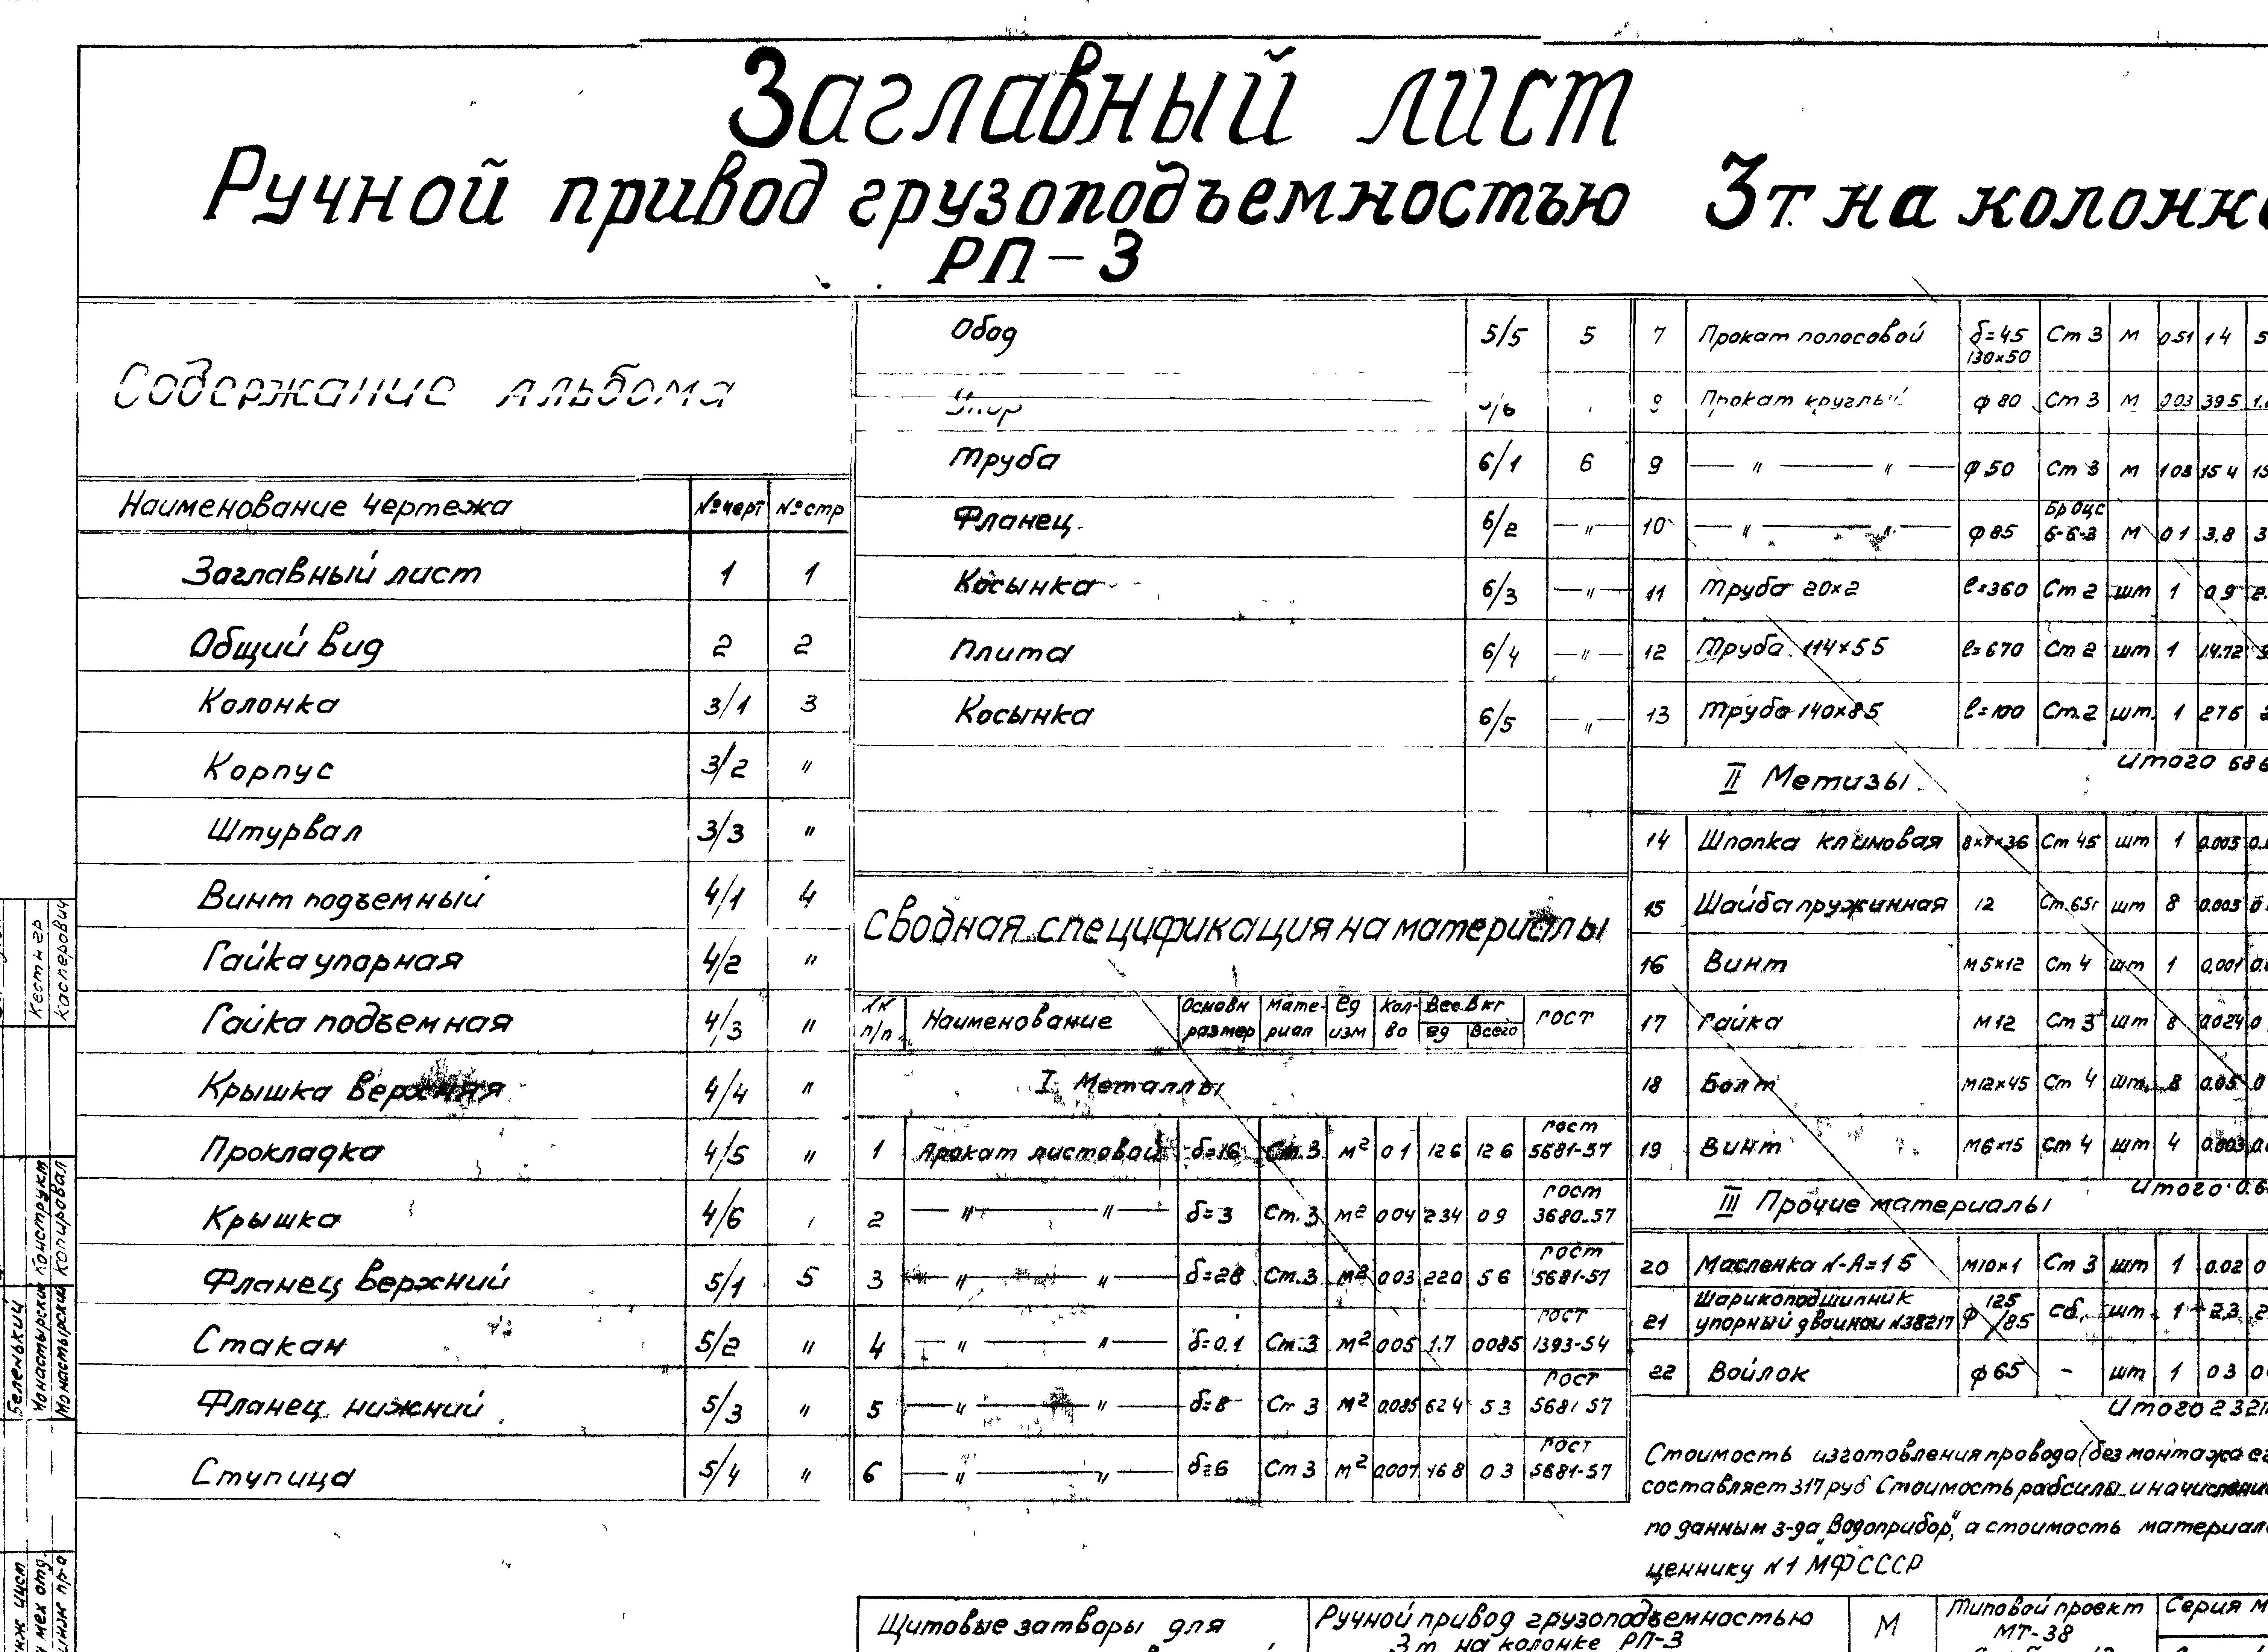 Заглавный лист
Ручной привод грузоподъемностью 3т. на колонке
РП-3
Содержание альбома
Наименование чертежа №черт №стр
Заглавный лист 1 1
Общий вид 2 2
Колонка 3/1 3
Корпус 3/2 "
Штурвал 3/3 "
Винт подъемный 4/1 4
Гайка упорная 4/2 "
Гайка подъемная 4/3 "
Крышка верхняя 4/4 "
Прокладка 4/5 "
Крышка 4/6
Фланец верхний 5/1 5
Стакан 5/2 "
Фланец нижний 5/3 "
Ступица 5/4 "
Обод 5/5 5
Упор
Труба 6/1 6
Фланец 6/2 — " —
Косынка 6/3 — " —
Плита 6/4 — " —
Косынка 6/5 — " —
Сводная спецификация на материалы
п/п Наименование Основн размер Мате-риал ед изм Кол-во Вес в кг ед всего гост
I Металлы
1 Прокат листовой δ=16 Ст.3 м² 01 126 126 гост 5681-57
2 — " — " — δ=3 Ст.3 м² 004 234 09 гост 3680-57
3 — " — " — δ=28 Ст.3 м² 003 220 56 гост 5681-57
4 — " — " — δ=0.1 Ст.3 м² 005 1.7 0085 гост 1393-54
5 — " — " — δ=8 Ст 3 м² 0.085 624 53 гост 5681 57
6 — " — " — δ=6 Ст 3 м² 0.007 468 03 гост 5681-57
7 Прокат полосовой δ=45 130×50 Ст 3 м 0.51 14
8 Прокат круглый ф 80 Ст 3 м 003 395
9 — " — " — ф 50 Ст 3 м 103 154
10 — " — " — ф 85 Бр Оцс 6-6-3 м 01 3,8
11 Труба 20×2 ℓ=360 Ст 2 шт 1 09
12 Труба 114×55 ℓ=670 Ст 2 шт 1 14.72
13 Труба 140×85 ℓ=100 Ст.2 шт. 1 276
Итого 686
II Метизы
14 Шпонка клиновая 8×7×36 Ст 45 шт 1 0.005
15 Шайба пружинная 12 Ст.65г шт 8 0.005
16 Винт М5×12 Ст 4 шт 1 0,001
17 Гайка М12 Ст 3 шт 8 0.024
18 Болт М12×45 Ст 4 шт. 8 0.05
19 Винт М6×15 Ст 4 шт 4 0.003
Итого 0.6
III Прочие материалы
20 Масленка N-А=15 М10×1 Ст 3 шт 1 0.02
21 Шарикоподшипник упорный двойной N38217 ф 125/85 сб. шт 1 23
22 Войлок ф 65 - шт 1 03
Итого 2321
Стоимость изготовления провода (без монтажа
составляет 317 руб Стоимость рабсилы и начислений
по данным з-да "Водоприбор", а стоимость
ценнику N1 МФСССР
Щитовые затворы для
Ручной привод грузоподъемностью
3т на колонке РП-3
М
Типовой проект
МТ-38
Серия
Кестнер
Касперович
Конструкт
Копировал
Беленький
Монастырский
Монастырский